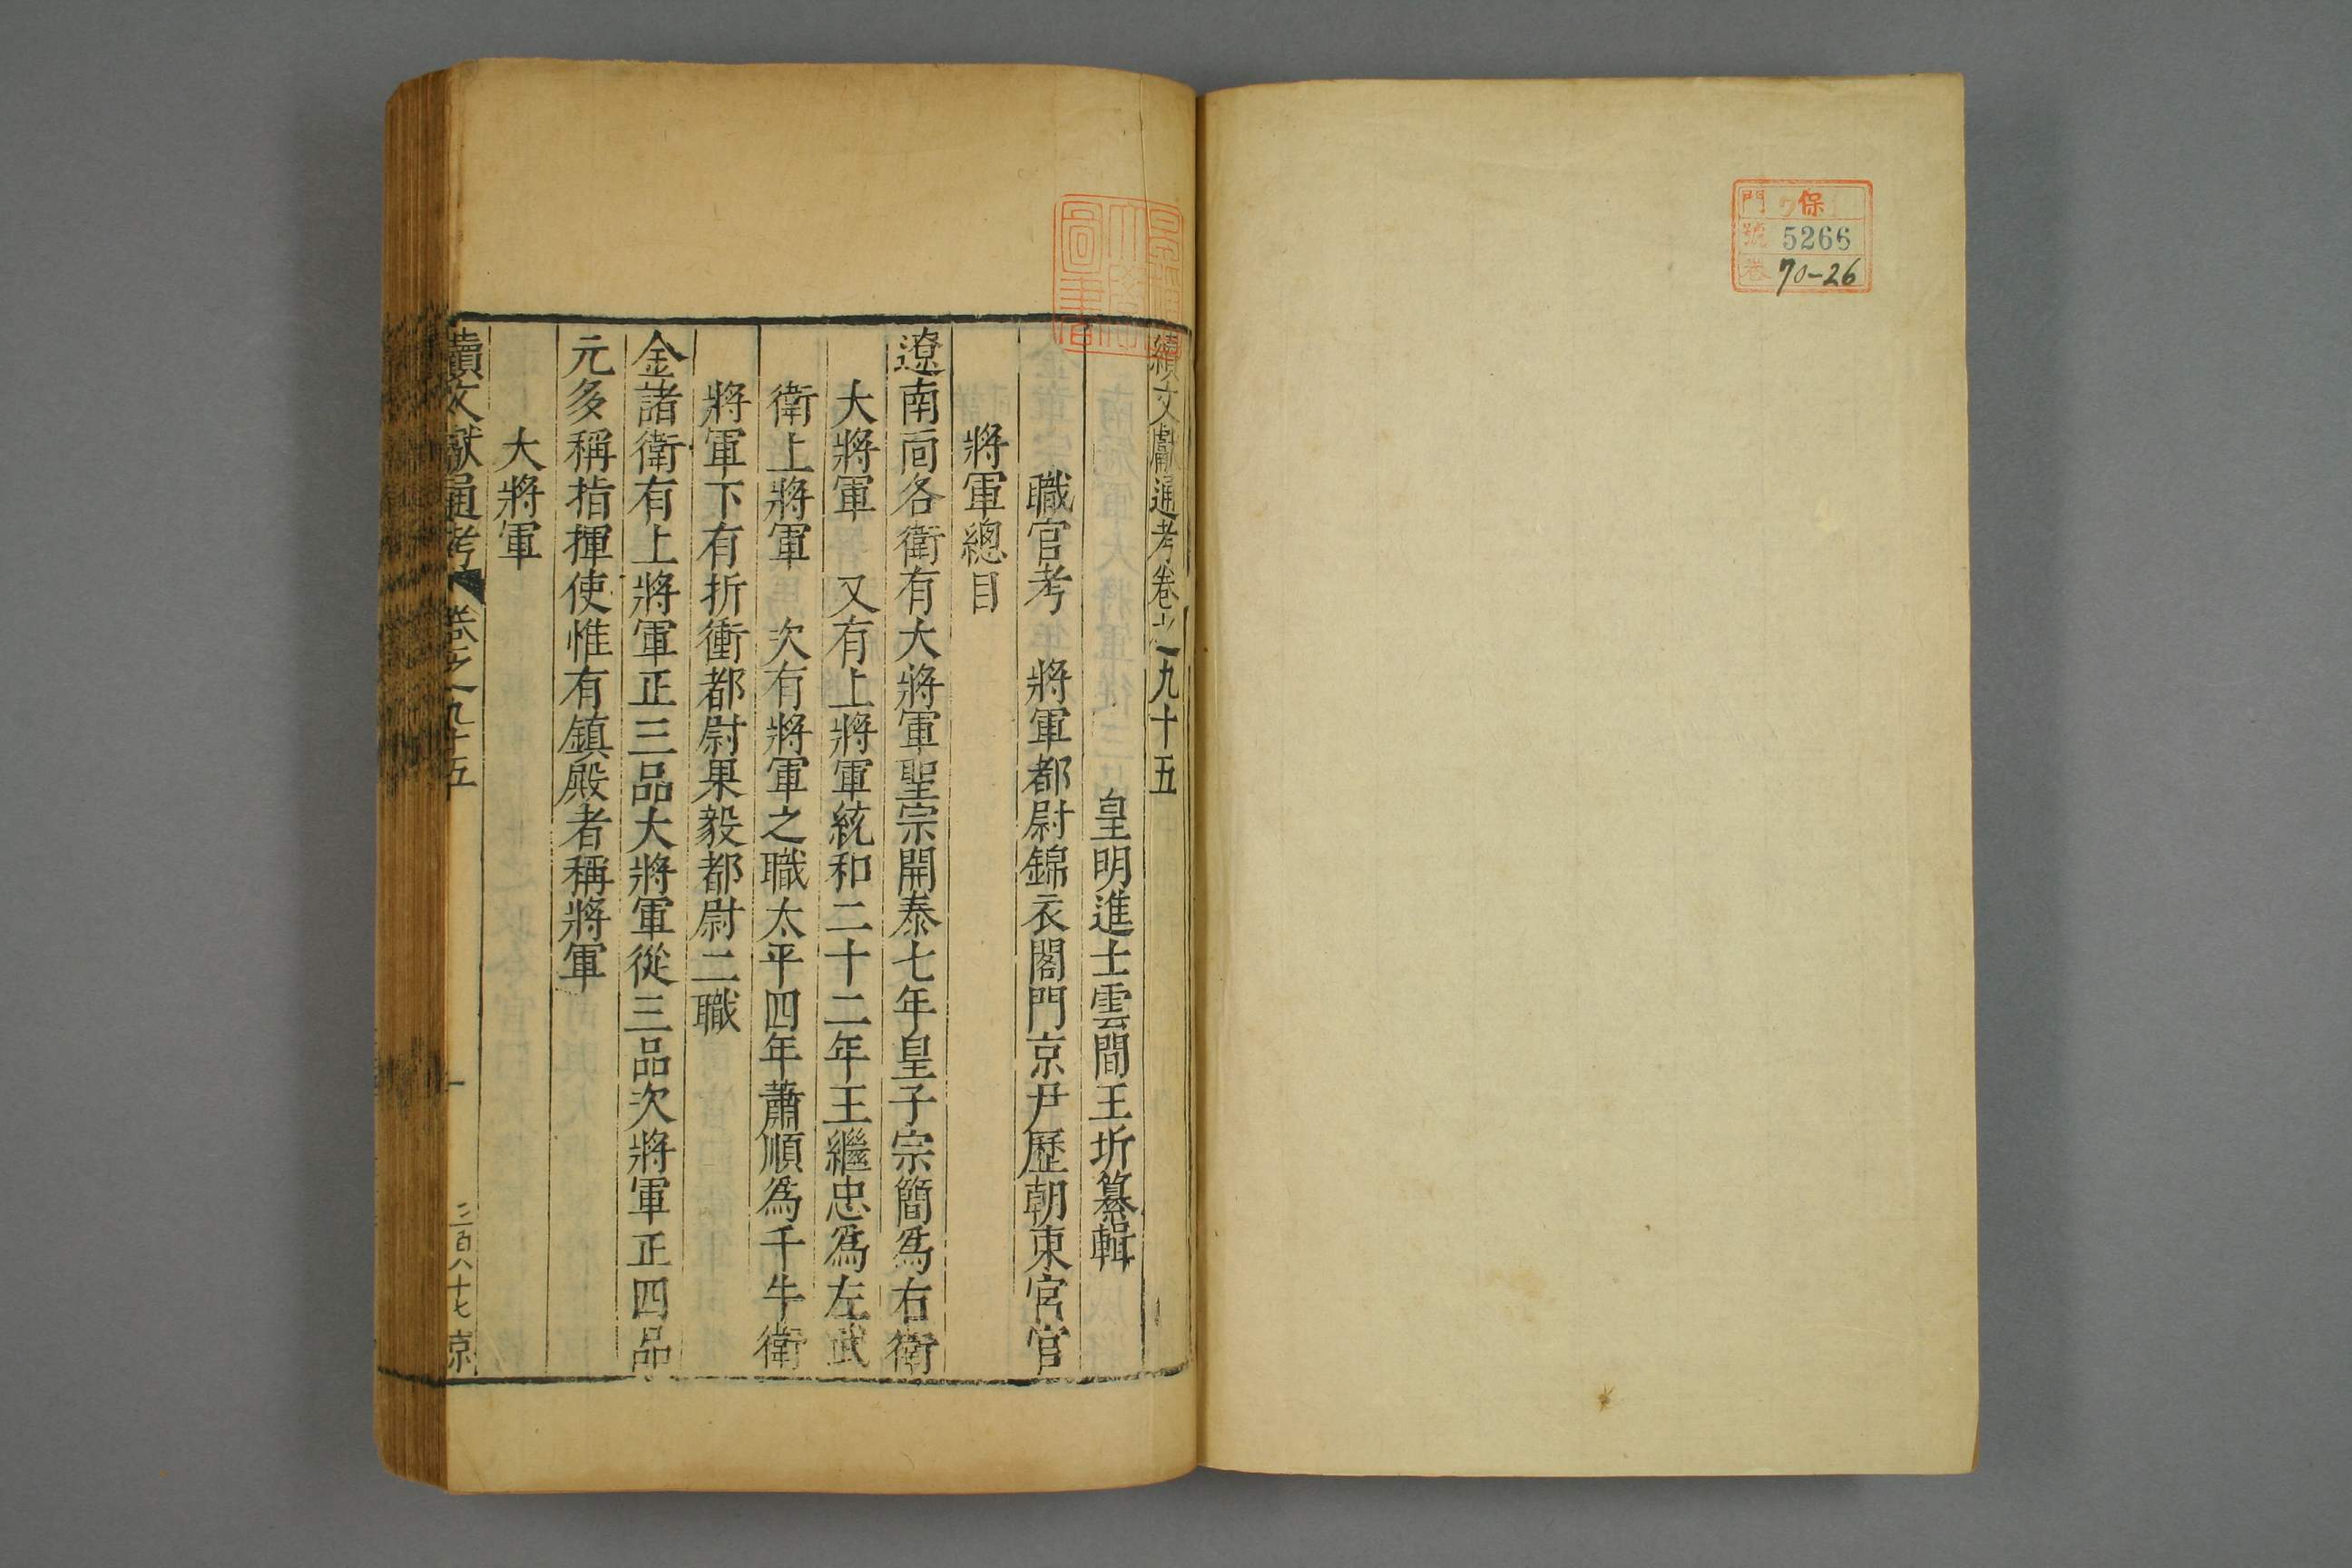 門 保
號 5266
卷 70-26
續文獻通考卷之九十五
皇明進士雲間王圻纂輯
職官考 將軍都尉錦衣閣門京尹歷朝東宮官
將軍總目
遼南面各衛有大將軍聖宗開泰七年皇子宗簡爲右衛
大將軍 又有上將軍統和二十二年王繼忠爲左武
衛上將軍 次有將軍之職太平四年蕭順爲千牛衛
將軍下有折衝都尉果毅都尉二職
金諸衛有上將軍正三品大將軍從三品次將軍正四品
元多稱指揮使惟有鎮殿者稱將軍
大將軍
續文獻通考 卷之九十五 一 三百八十七 京